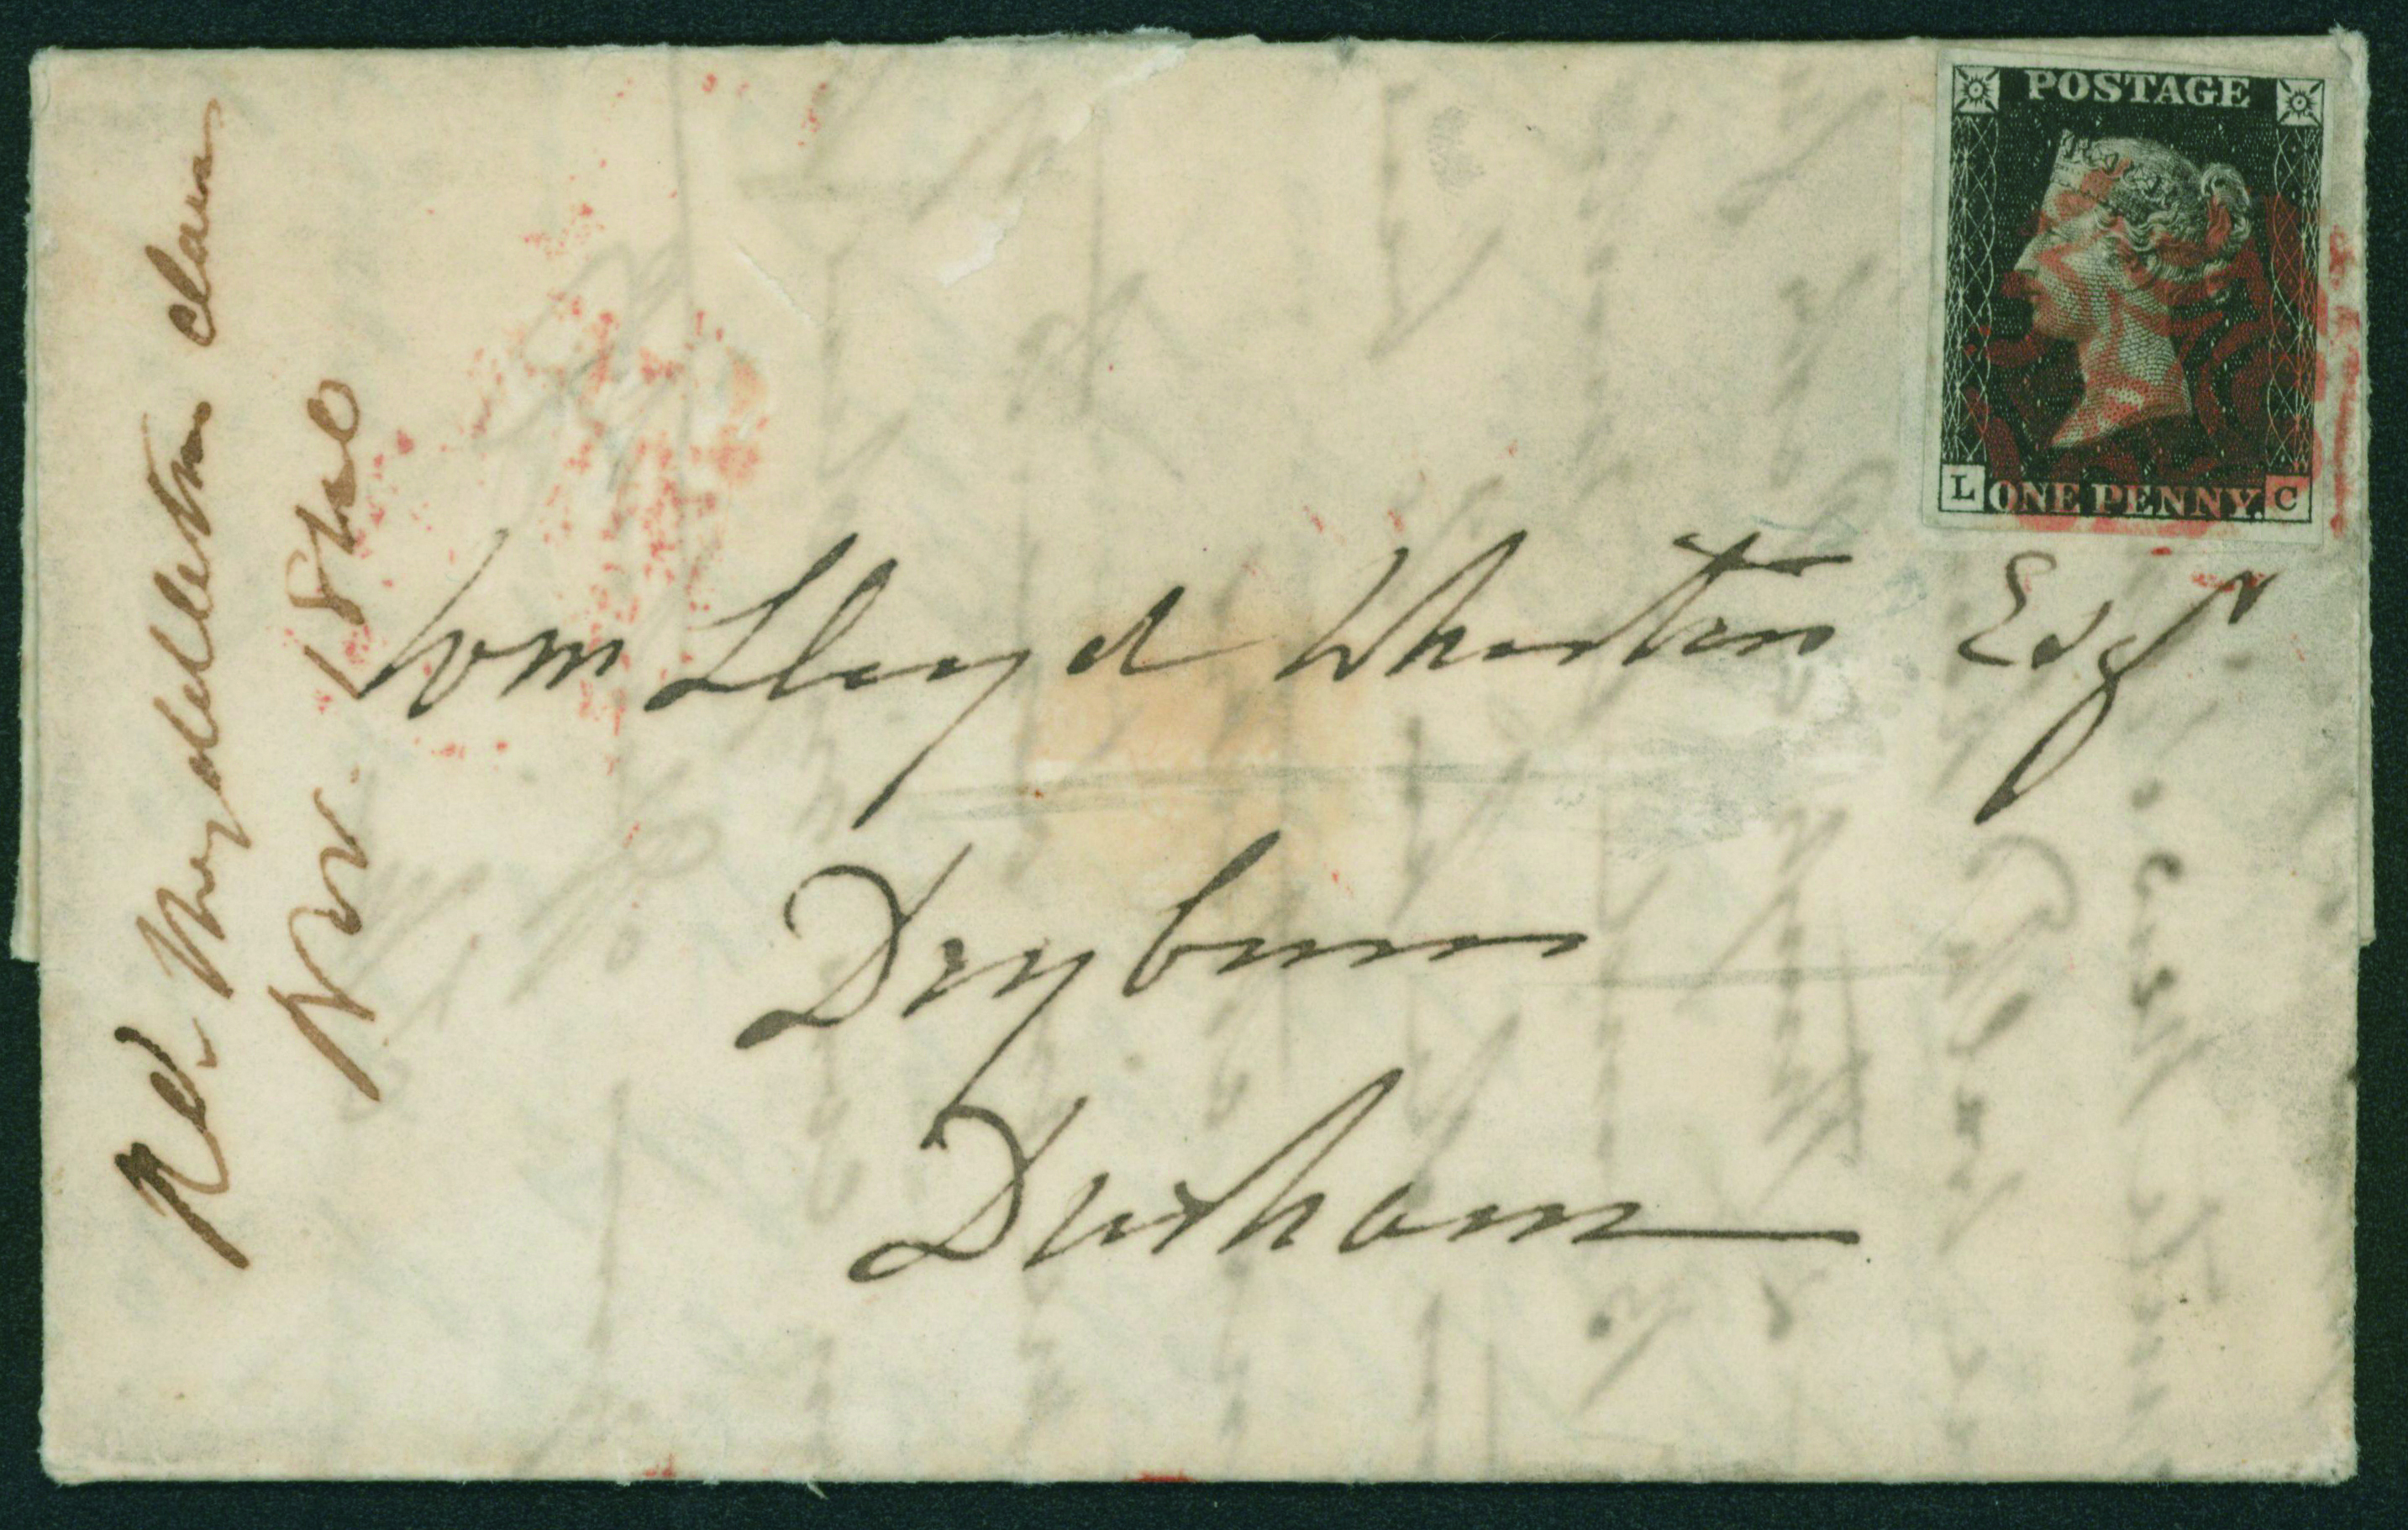 POSTAGE
L ONE PENNY. C
Wm Lloyd Wharton Esqr
Dryburn
Durham
Myddleton
1840